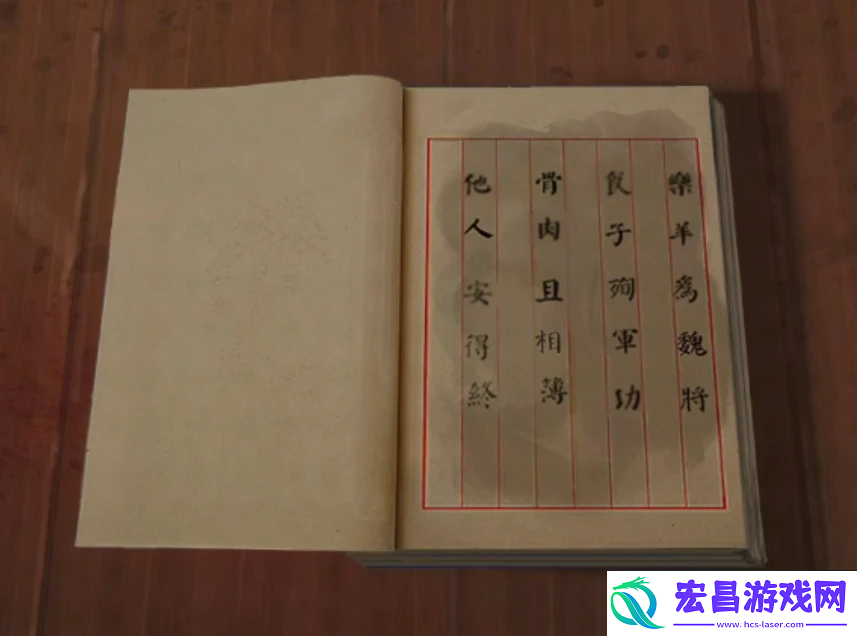 樂羊為魏將
食子殉軍功
骨肉且相薄
他人安得終
宏昌游戏网
www.hcs-laser.com